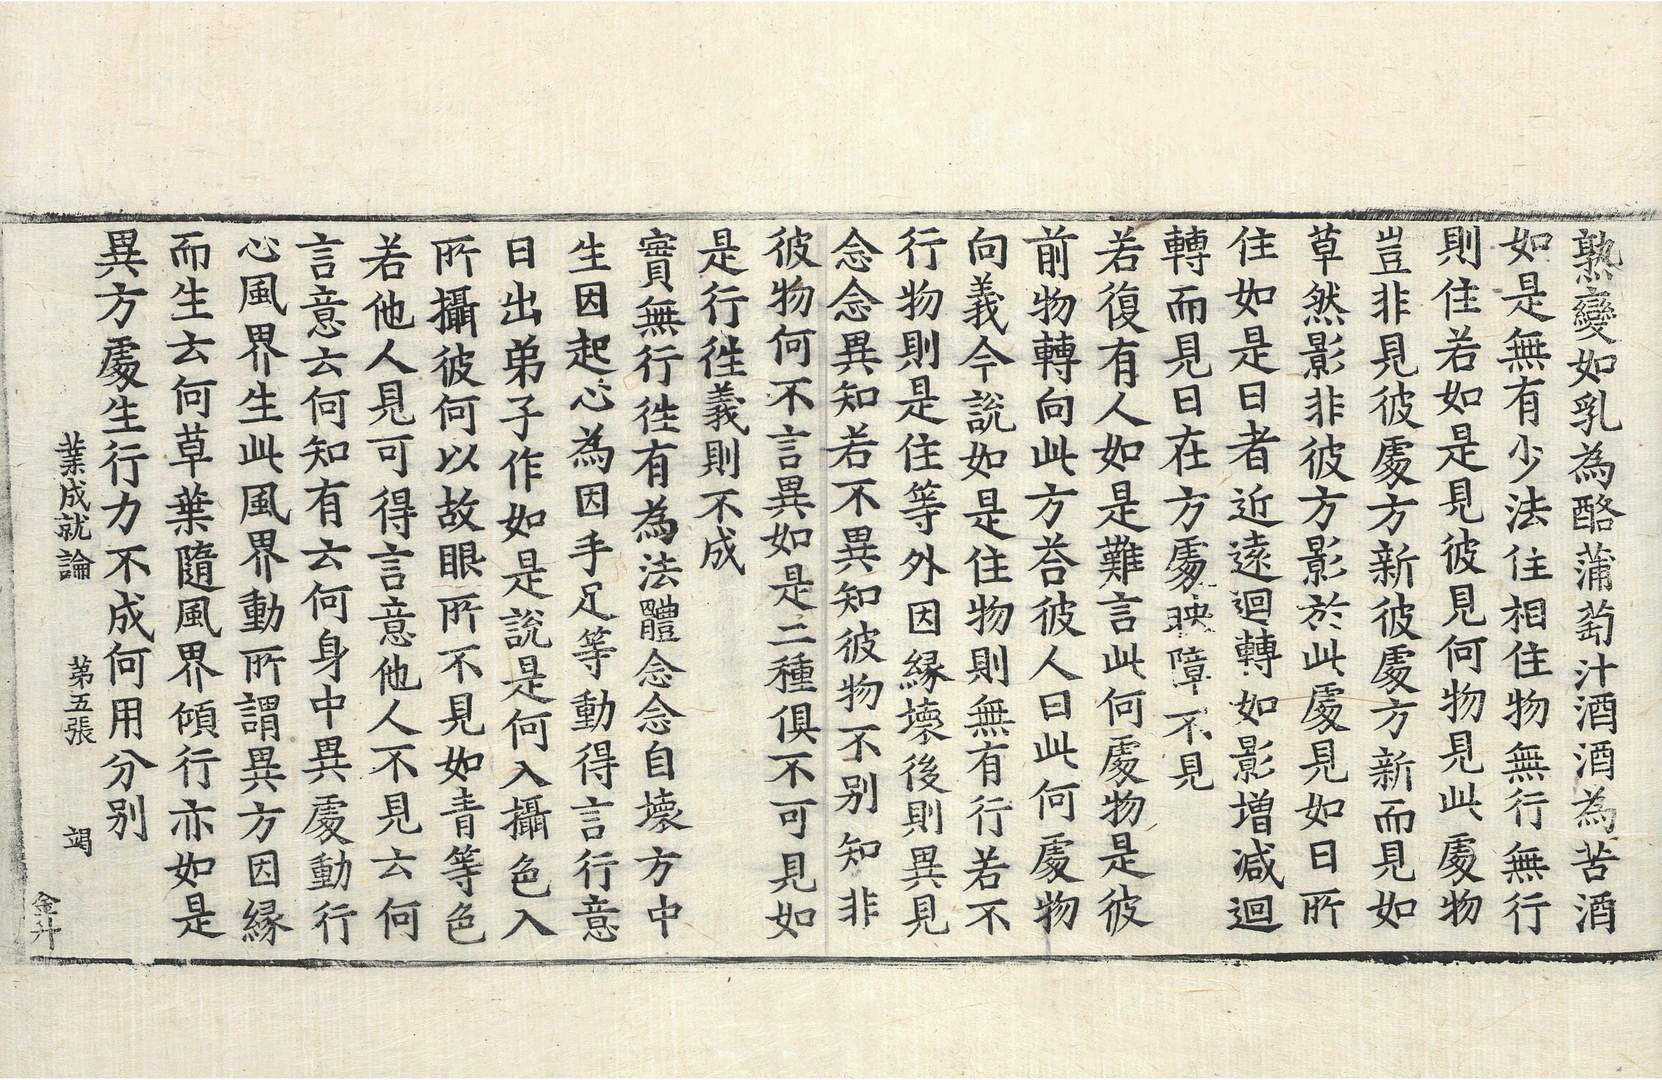 熟變如乳為酪蒲萄汁酒酒為苦酒
如是無有少法住相住物無行無行
則住若如是見彼見何物見此處物
豈非見彼處方新彼處方新而見如
草然影非彼方影於此處見如日所
住如是日者近遠迴轉如影增減迴
轉而見日在方處映障不見
若復有人如是難言此何處物是彼
前物轉向此方荅彼人曰此何處物
向義今說如是住物則無有行若不
行物則是住等外因緣壞後則異見
念念異知若不異知彼物不別知非
彼物何不言異如是二種俱不可見如
是行徃義則不成
實無行徃有為法體念念自壞方中
生因起心為因手足等動得言行意
日出弟子作如是說是何入攝色入
所攝彼何以故眼所不見如青等色
若他人見可得言意他人不見云何
言意云何知有云何身中異處動行
心風界生此風界動所謂異方因緣
而生云何草葉隨風界傾行亦如是
異方處生行力不成何用分別
業成就論 第五張 竭
金升